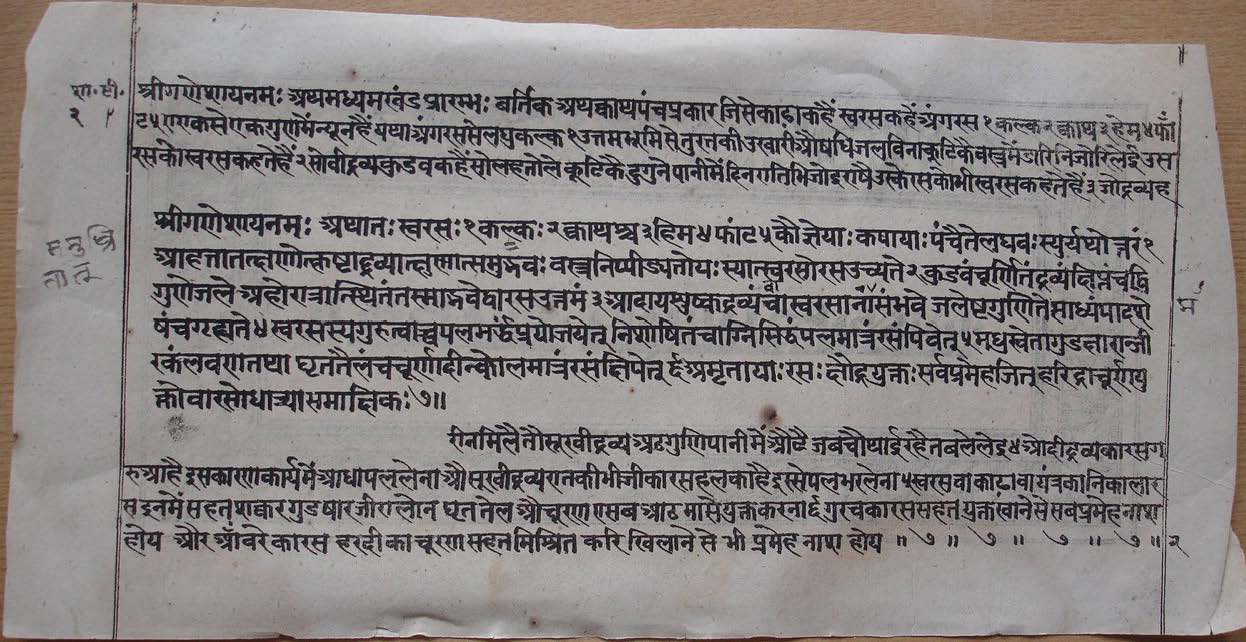 शा.टी.
२
श्रीगणेशायनमः अथमध्यमखंडप्रारम्भः बर्तिक अथक्वाथपंचप्रकार जिसेकाढाकहैं स्वरसकहैंअंगरस १ कल्क २ क्वाथ ३ हेम ४ फां
ट ५ एएकसेएकगुणमेंन्यूनहैं यथाअंगरससेलघुकल्क १ उत्तमभूमिसेतुरतकीउखारीऔषधिजलविनाकूटिकेवस्त्रमेंडारिनिजोरिलेईउस
रसकोस्वरसकहतेहैं २ सोवीद्रव्यकुडवकहैंसोलहतोले कूटिकैदुगुनेपानीमेंदिनरातिभिजोइराषैउस्केरसकोभीस्वरसकहतेहैं ३ जोद्रव्यह
श्रीगणेशायनमः अथातः स्वरसः १ कल्कः २ क्वाथश्च ३ हिम ४ फांट ५ कौज्ञेयाः कषायाः पंचैतेलघवः स्युर्यथोत्तरं १
आहतात्तत्क्षणोत्कृष्टाद्द्रव्यात्क्षुणात्समुद्भवः वस्त्रनिष्पीड्यतोयः स्यात्स्वरसोरसउच्यते २ कुडवंचूर्णितंद्रव्यंक्षिप्तंचद्वि
गुणेजले अहोरात्रात्स्थितंतस्माद्भवेद्वारसउत्तमं ३ आदायशुष्कद्रव्यंवास्वरसानांसंभवे जलेष्टगुणितेसाध्यंपादशे
षंचगृह्यते ४ स्वरसस्यगुरुत्वाच्चपलमर्द्धंप्रयोजयेत् निशोषितंचाग्निसिद्धंपलमात्रंरसंपिवेत् ५ मधुस्वेतागुडक्षारान्जी
रकंलवणंतथा घृततैलंचचूर्णादीन्कोलमात्रंरसंक्षिपेत् ६ अमृतायाः रसः क्षौद्रयुक्तः सर्वप्रमेहजित् हरिद्राचूर्णयु
क्तोवारसोधात्र्यासमाक्षिकः ७॥
रीनमिलैतौसूखीद्रव्य अठगुणिपानीमेंऔटै जबचौथाईरहैतबलेलेइ ४ ओदीद्रव्यकारसग
रुआहैइसकारणकार्यमेंआधापललेना औसूखीद्रव्यरातकीभीजीकारसहलकाहैइस्सेपलभरलेना ५ स्वरसवाकाढावायंत्रकानिकालार
सइनमेंसहतशक्करगुडषारजीरालोनघृततेलऔचूरणएसबआठमासेयुक्तकरना ६ गुरचकारससहतयुक्तखानेसेसबप्रमेहनाश
होय और आँवरेकारस हरदीकाचूरण सहतमिश्रित करि खिलाने से भी प्रमेह नाश होय ॥ ७ ॥ ७ ॥ ७ ॥ ७ ॥ २